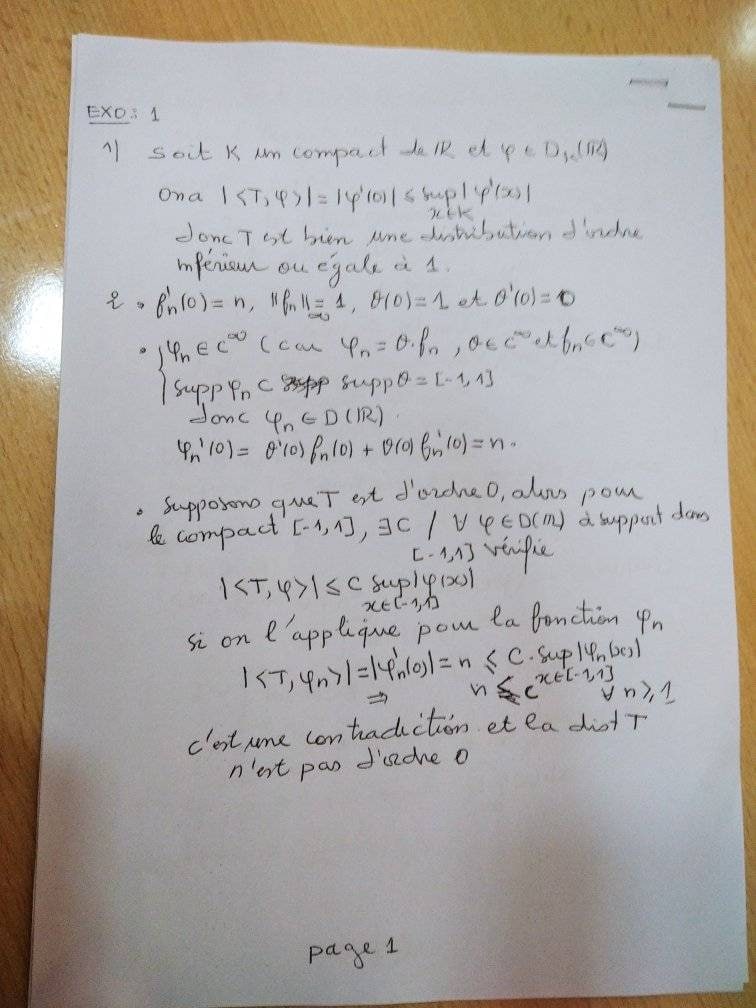 EXO: 1
1) Soit K un compact de IR et φ ∈ D_K(IR)
On a |<T,φ>| = |φ'(0)| ≤ sup |φ'(x)|
x∈K
donc T est bien une distribution d'ordre
inférieur ou égale à 1.
2 • fn'(0) = n, ||fn||∞ = 1, θ(0) = 1 et θ'(0) = 0
• { φn ∈ C^∞ (car φn = θ.fn, θ ∈ C^∞ et fn ∈ C^∞)
supp φn ⊂ supp θ = [-1,1]
donc φn ∈ D(IR).
φn'(0) = θ'(0) fn(0) + θ(0) fn'(0) = n.
• Supposons que T est d'ordre 0, alors pour
le compact [-1,1], ∃C / ∀ φ ∈ D(IR) à support dans
[-1,1] vérifie
|<T,φ>| ≤ C sup |φ(x)|
x∈[-1,1]
si on l'applique pour la fonction φn
|<T,φn>| = |φn'(0)| = n ≤ C. sup |φn(x)|
x∈[-1,1]
⇒ n ≤ C ∀ n ≥ 1
c'est une contradiction. et la dist T
n'est pas d'ordre 0
page 1